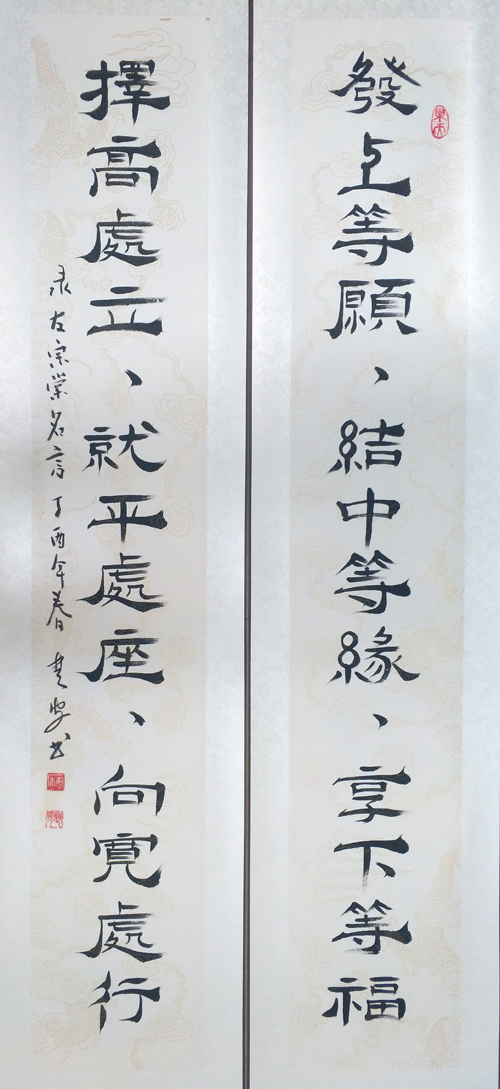 發上等願、結中等緣、享下等福
擇高處立、就平處座、向寬處行
录左宗棠名言 丁酉年春